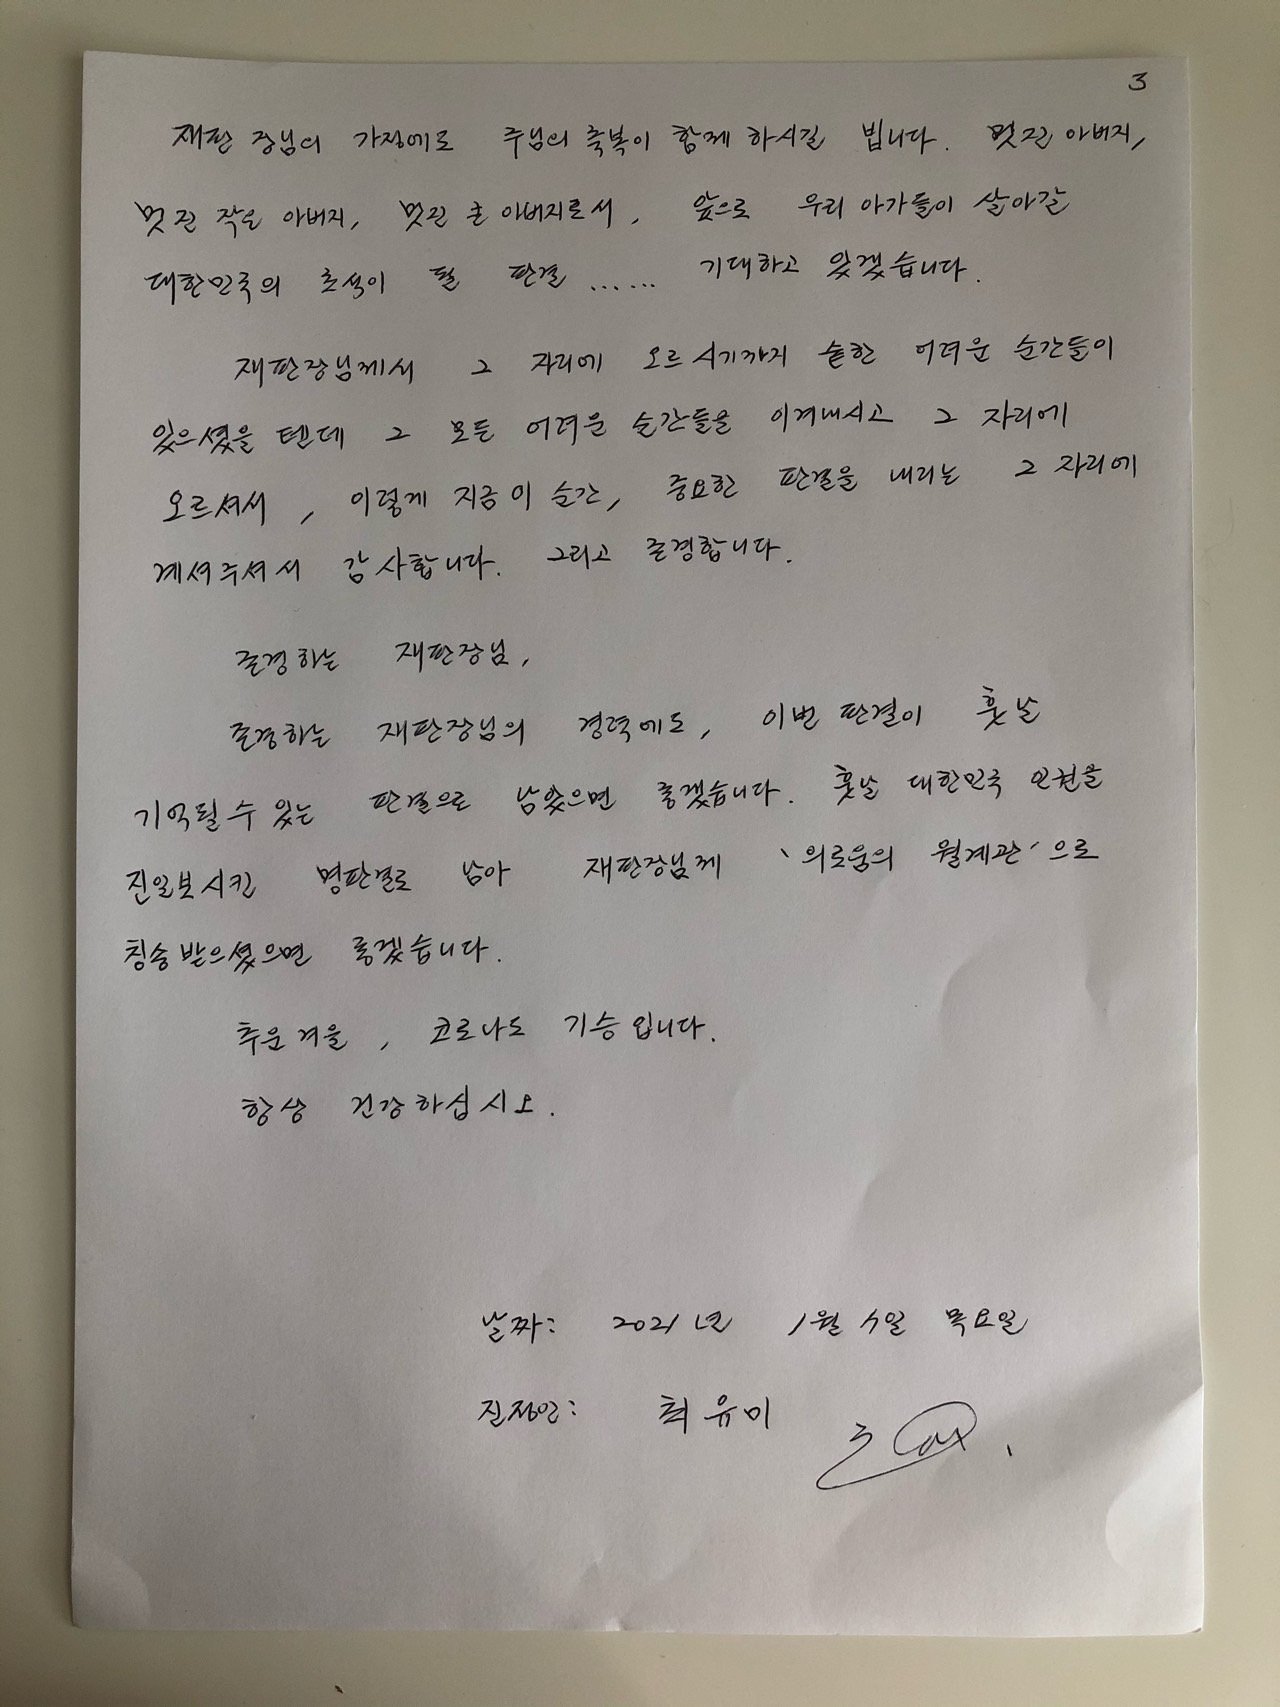 3
재판장님의 가정에도 주님의 축복이 함께 하시길 빕니다. 멋진 아버지,
멋진 작은 아버지, 멋진 큰 아버지로서, 앞으로 우리 아가들이 살아갈
대한민국의 초석이 될 판결 ...... 기대하고 있겠습니다.
재판장님께서 그 자리에 오르시기까지 숱한 어려운 순간들이
있으셨을 텐데 그 모든 어려운 순간들을 이겨내시고 그 자리에
오르셔서, 이렇게 지금 이 순간, 중요한 판결을 내리는 그 자리에
계셔주셔서 감사합니다. 그리고 존경합니다.
존경하는 재판장님,
존경하는 재판장님의 경력에도, 이번 판결이 훗날
기억될 수 있는 판결으로 남았으면 좋겠습니다. 훗날 대한민국 인권을
진일보시킨 명판결로 남아 재판장님께 '의로움의 월계관'으로
칭송받으셨으면 좋겠습니다.
추운 겨울, 코로나도 기승입니다.
항상 건강하십시오.
날짜: 2021년 1월 일 목요일
진정인: 최유미